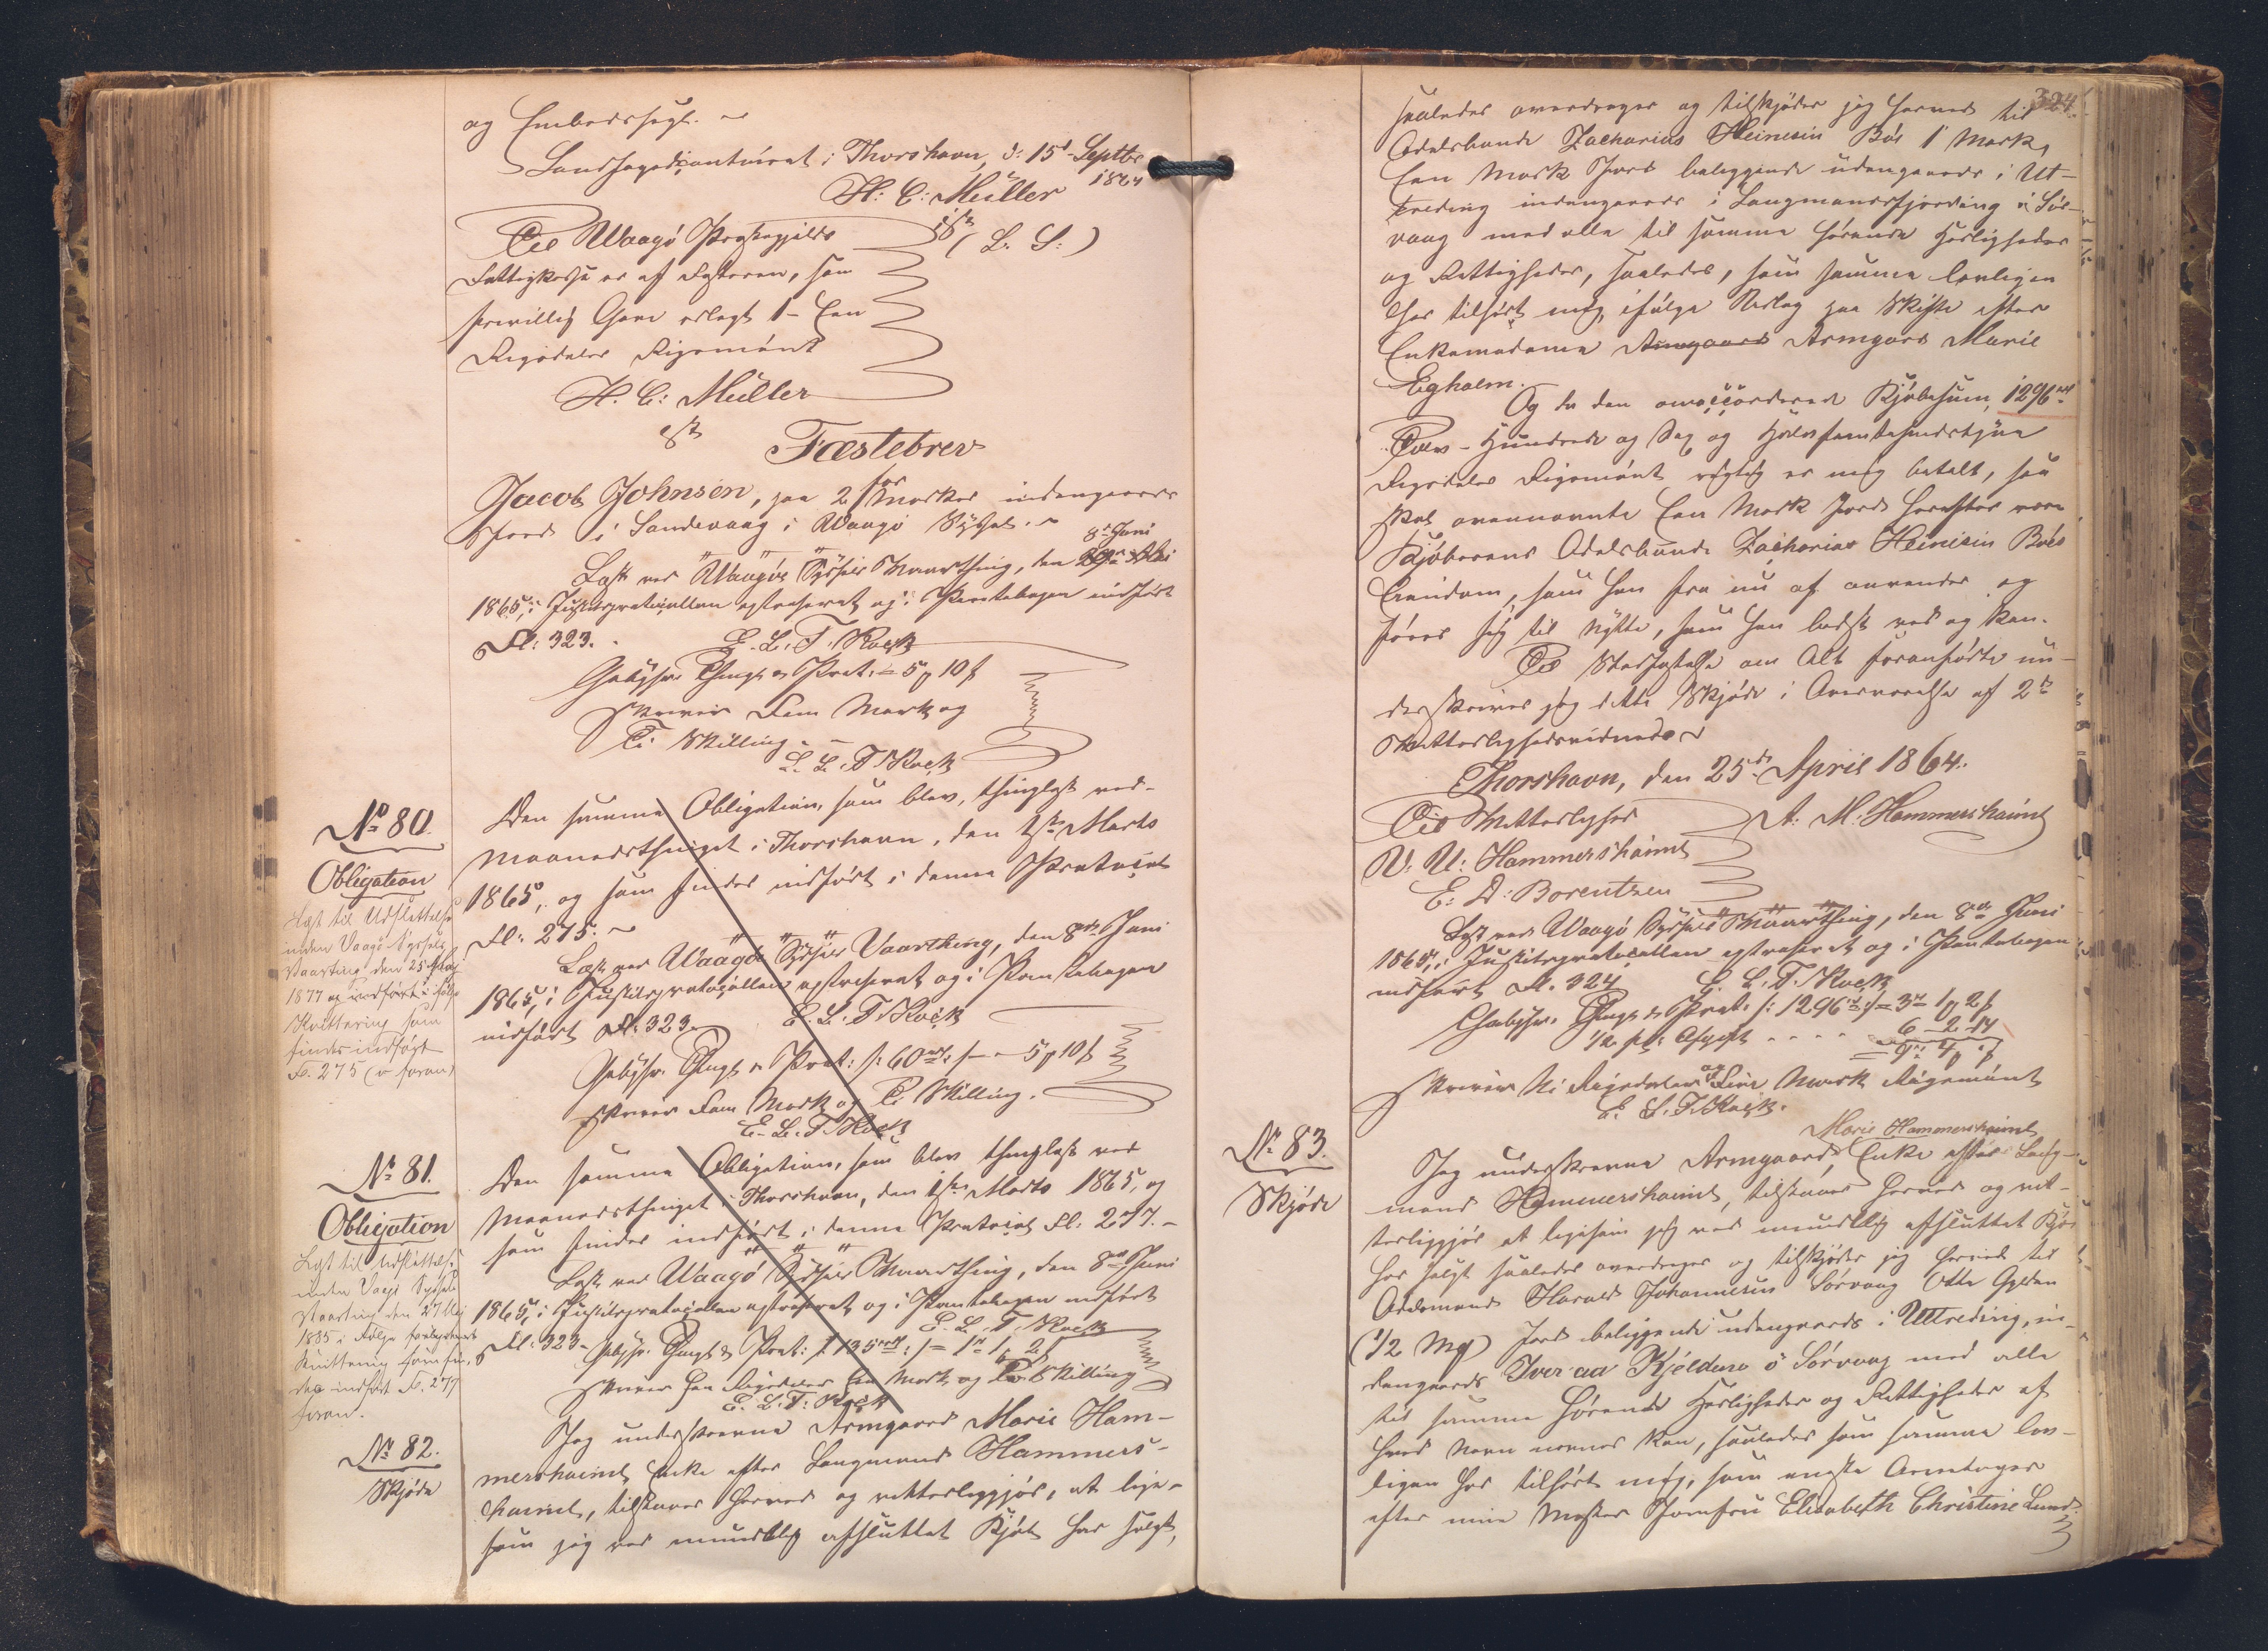 og Embedssegl. ~
Landfogedcontoiret i Thorshavn, d: 15d Septbr
1864
H: C: Müller
est
(L. S:)
Til Waagø Præstegjelds
Fattigkasse er af Fæsteren, som
frivillig Gave erlagt 1- Een
Rigsdaler Rigsmønt
H. C: Müller
est
Fæstebrev
for
Jacob Johnsen, paa 2 Marker indengaards
Jord i Sandevaag i Waagø Syssel. ~
8de Juni
Læst ved Waagøe Syssels Vaarthing, den
1865, i Justitsprotocollen extraheret og i Pantebogen indført
Fol: 323.
E. L. T. Kock
Gebyhr. Thingl. & Prot. = 5 p 10 s
Skriver Fem Mark og
Ti Skilling. -
E. L. T. Kock
No 80.
Obligation
Læst til Udslettelse
inden Vaagø Syssels
Vaarting den 25 Maj
1877 og indført i følge
Kvittering som
findes indført
Fo. 275 (v foran)
Den samme Obligation, som blev, thinglæst ved
Maanedsthinget i Thorshavn, den 1ste Marts
1865, og som findes indført i denne Protocol
Fol: 275. ~
Læst ved Waagø Syssels Vaarthing, den 8de Juni
1865, i Justitsprotocollen extraheret og i Pantebogen
indført Fol: 323.
E. L. T. Kock
Gebyhr. Thingl. & Prot: /: 60 rd :/ - 5 p 10 s
Skriver Fem Mark og Ti Skilling.
E. L. T. Kock
No 81.
Obligation
Læst til Udslettelse
inden Vaagø Syssels
Vaarting den 27 Maj
1885 i Følge
Kvittering som fin-
des indført Fo. 277
foran.
Den samme Obligation, som blev thinglæst ved
Maanedsthinget i Thorshavn, den 1ste Marts 1865, og
som findes indført i denne Protocol Fol: 277. -
Læst ved Waagø Syssels Vaarthing, den 8de Juni
1865, i Justitsprotocollen extraheret og i Pantebogen indført
Fol: 323-
E. L. T. Kock
Gebyhr. Thingl. & Prot: /: 135 rd :/ = 1 rd 1 p 2 s
Skriver Een Rigsdaler Een Mark og To Skilling
E. L. T. Kock
No 82.
Skjøde
Jeg underskrevne Armgaard Marie Ham-
mershaimb Enke efter Laugmand Hammers-
haimb, tilstaaer herved og vitterliggjør, at lige-
som jeg ved mundtlig afsluttet Kjøb har solgt,
324.
saaledes overdrager og tilskjøder jeg herved til
Odelsbonde Zacharias Heinesin Bøe 1 Mark,
Een Mark Jord beliggende udengaards i Ut-
treding indengaards i Laugmandsfjording i Sør-
vaag med alle til samme hørende Herligheder
og Rettigheder, saaledes, som samme lovligen
har tilhørt mig, ifølge Udlæg paa Skifte efter
Enkemadame Armgaard Armgard Marie
Egholm.
Og da den omaccorderede Kjøbesum, 1296 rd
Tolv-Hundrede og Sex og Halvfemtesindstyve
Rigsdaler Rigsmønt rigtig er mig betalt, saa
skal ovennævnte Een Mark Jord herefter være
Kjøberens Odelsbonde Zacharias Heinesin Bøes
Eiendom, som han fra nu af anvender og
fører sig til Nytte, som han bedst ved og kan.
Til Stadfæstelse om Alt foranførte un-
derskriver jeg dette Skjøde i Overværelse af 2de
Vitterlighedsvidner
Thorshavn, den 25de April 1864.
A: M. Hammershaimb
Til Vitterlighed
V. U: Hammershaimb
E: A: Borentzen
Læst ved Waagø Syssels Vaarthing, den 8de Juni
1865, i Justitsprotocollen extraheret og i Pantebogen
indført Fol. 324
E. L. T. Kock
Gebyhr. Thingl. & Prot. /: 1296 rd :/ = 3 rd 1 p 2 s
1/2 pct: Afgift - - - - 6 - 2 - 14
= 9 rd 4 p " s
Skriver Ni Rigsdaler og Fire Mark Rigsmønt
E. L. T. Kock.
No 83.
Skjøde
Marie Hammershaimb
Jeg underskrevne Armgaard, Enke efter Laug-
mand Hammershaimb, tilstaaer herved og vit-
terliggjør at ligesom jeg ved mundtlig afsluttet Kjøb
har solgt saaledes overdrager og tilskjøder jeg herved til
Odelsmand Harald Johannesen Sørvaag Otte Gylden
(1/2 Mk) Jord beliggende udengaards i Uttreding, in-
dengaards Iver aa Kjelduno i Sørvaag med alle
til samme hørende Herligheder og Rettigheder af
hvad Navn nævnes kan, saaledes som samme lov-
ligen har tilhørt mig, som eneste Arvetager
efter min Moster Jomfru Elisabeth Christine Lund.